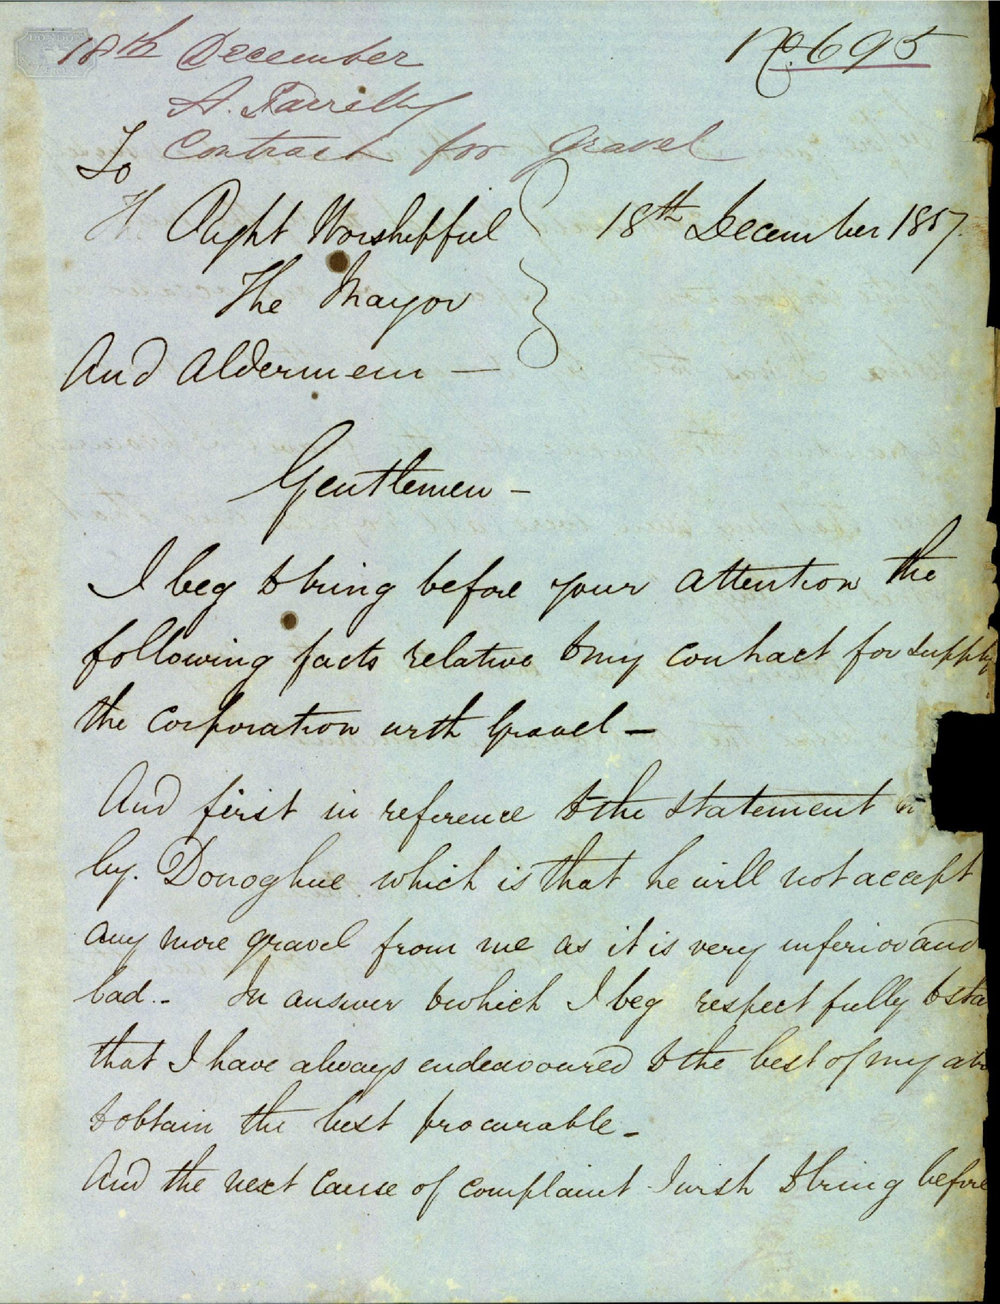 18th December
No. 695
A.
Contract for Gravel
To
The Right Worshipful
18th December 1857.
The Mayor
And Aldermem —
Gentlemen —
I beg to bring before your attention the
following facts relative to my contract for supply
the Corporation with Gravel —
And first in reference to the statement
by. Donoghue which is that he will not accept
any more gravel from me as it is very inferior and
bad. - In answer to which I beg respectfully to sta
that I have always endeavoured to the best of my abi
to obtain the best procurable. -
And the next cause of complaint I wish to bring before